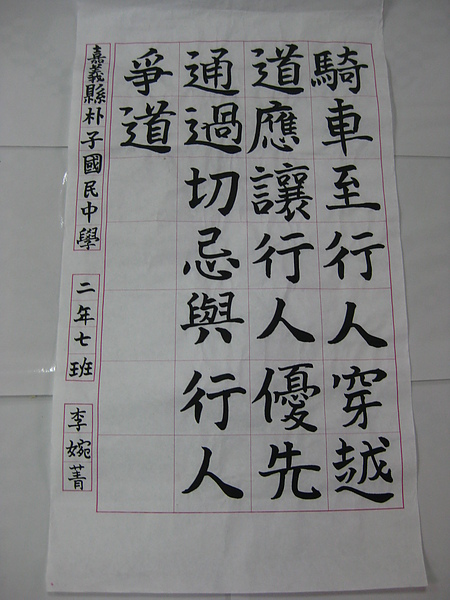 騎車至行人穿越
道應讓行人優先
通過切忌與行人
爭道
嘉義縣朴子國民中學 二年七班 李婉菁